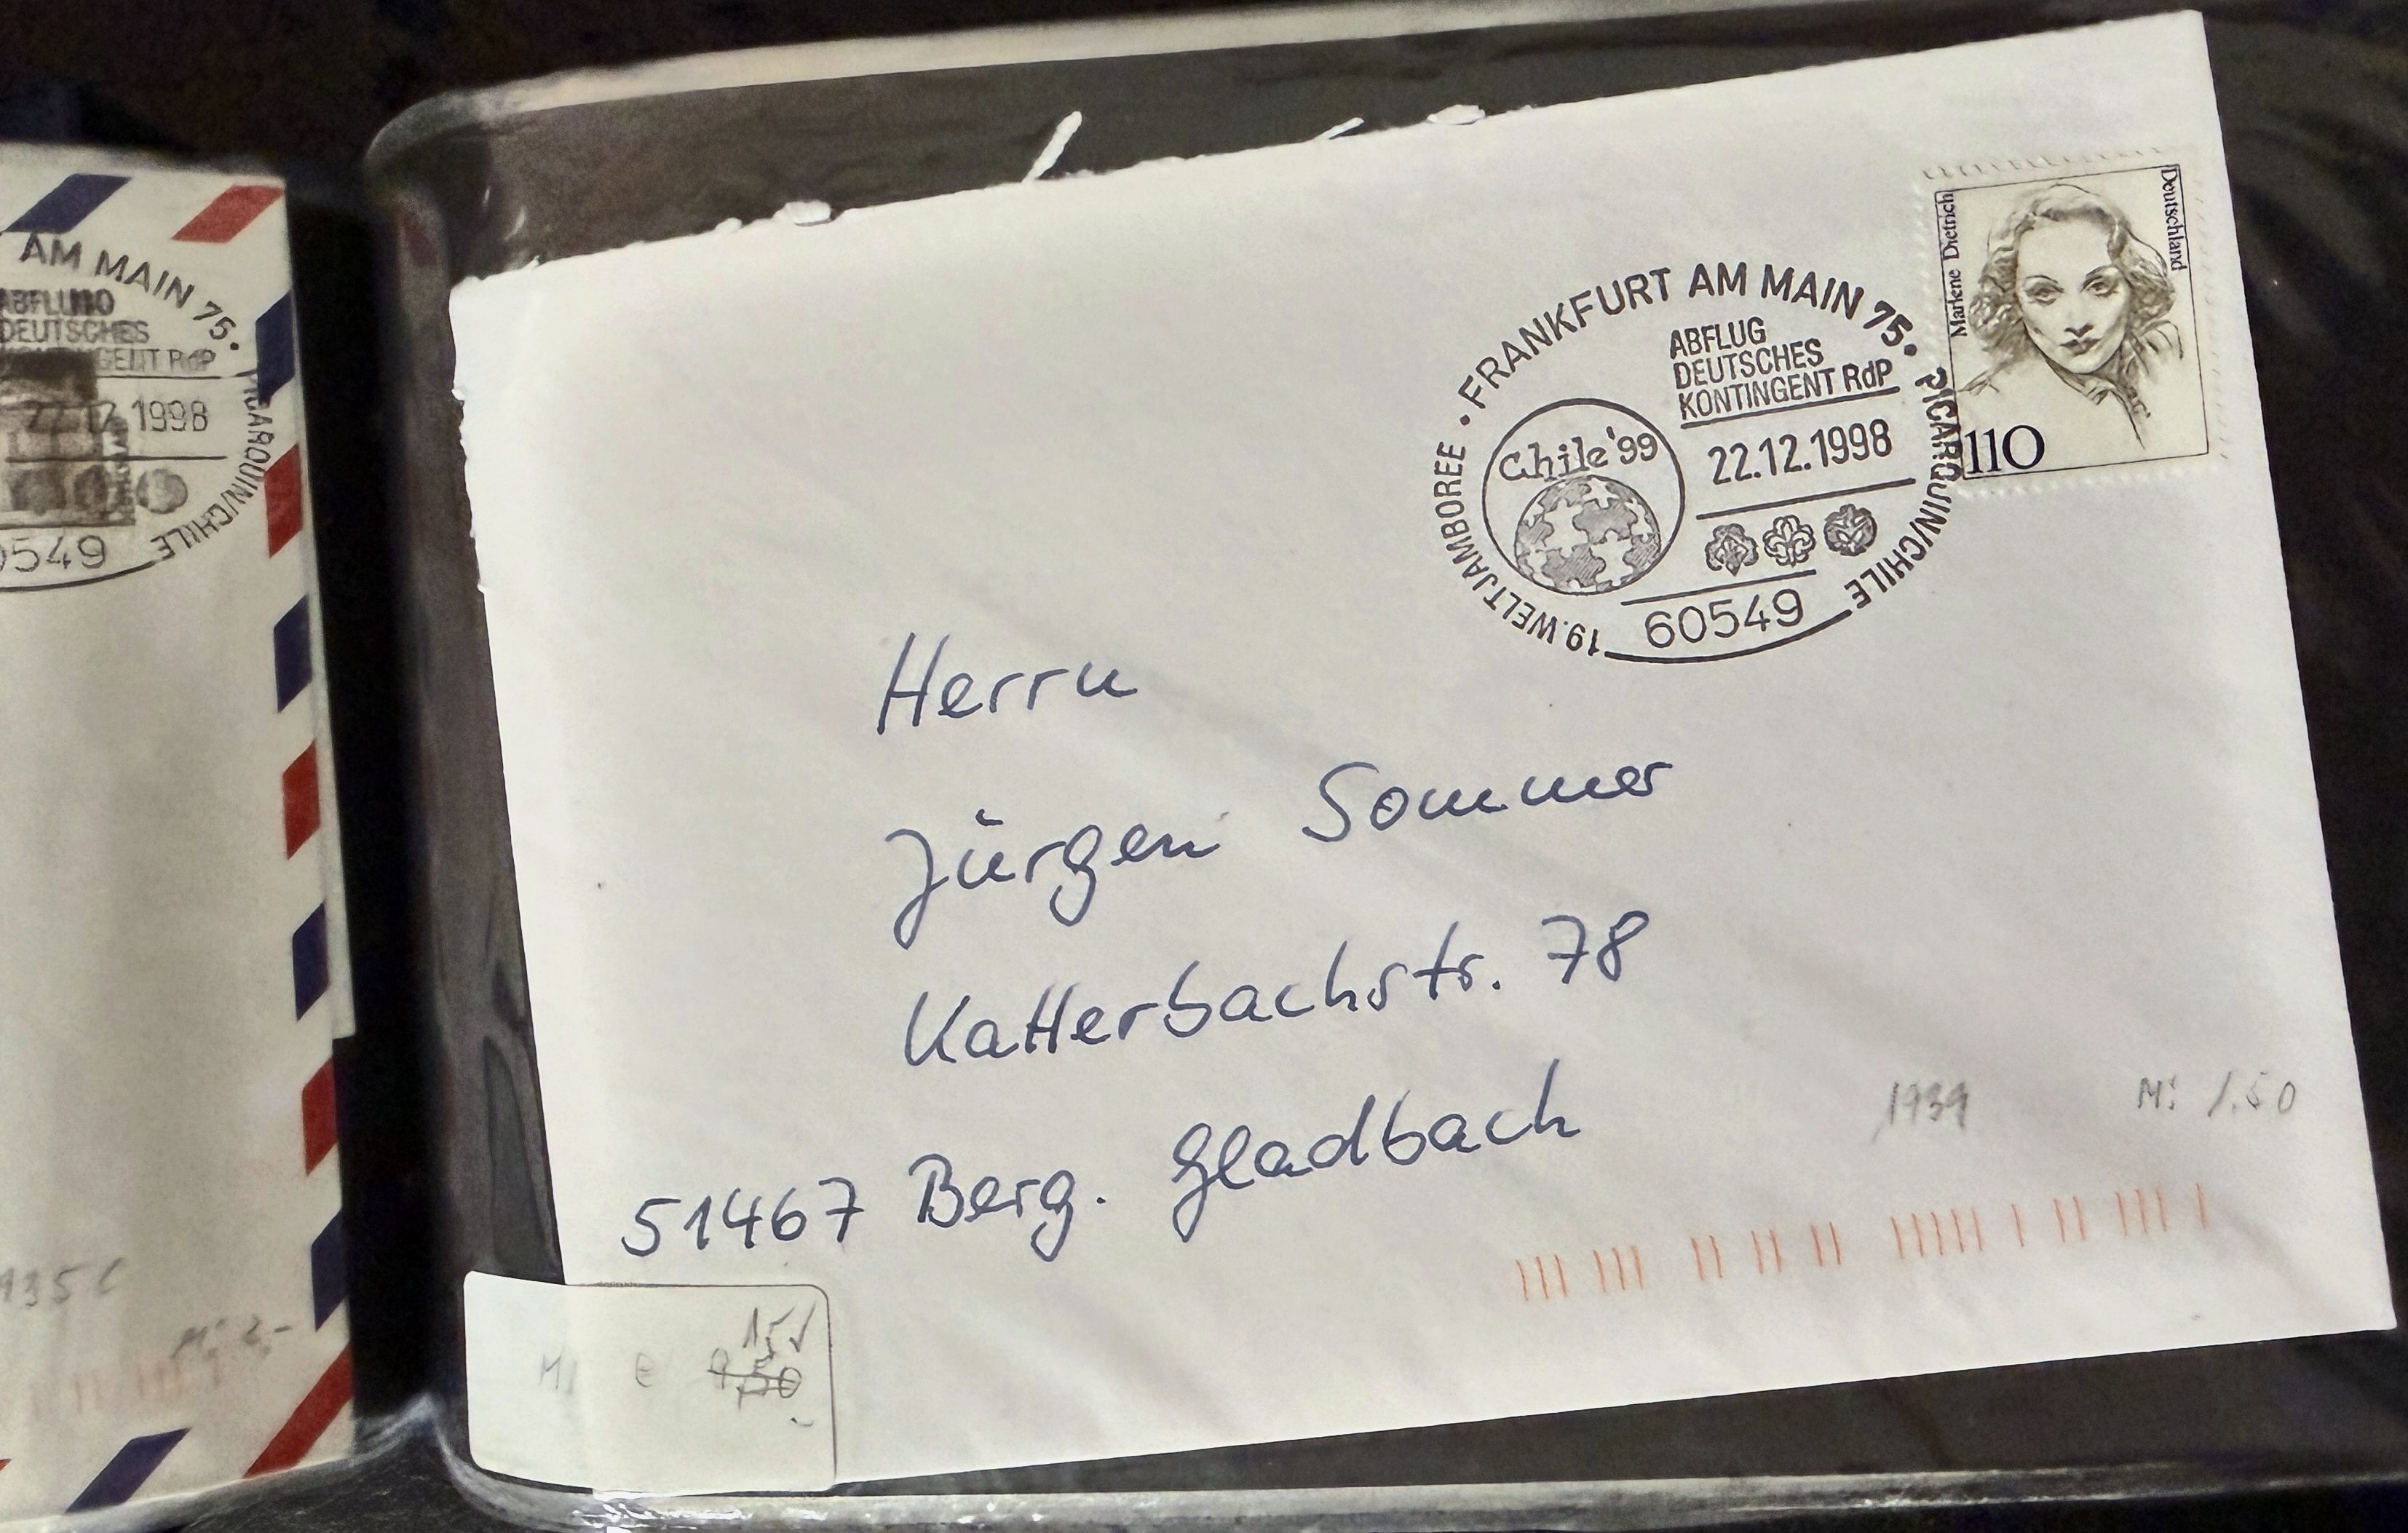 AM MAIN 75.
DEUTSCHES
RdP
22.12.1998
PICARQUIN/CHILE
Marlene Dietrich
Deutschland
110
19. WELTJAMBOREE • FRANKFURT AM MAIN 75 • PICARQUIN/CHILE
ABFLUG
DEUTSCHES
KONTINGENT RdP
Chile '99
22.12.1998
60549
Herrn
Jürgen Sommer
Katterbachstr. 78
51467 Berg. Gladbach
1939 Mi 1.50
€